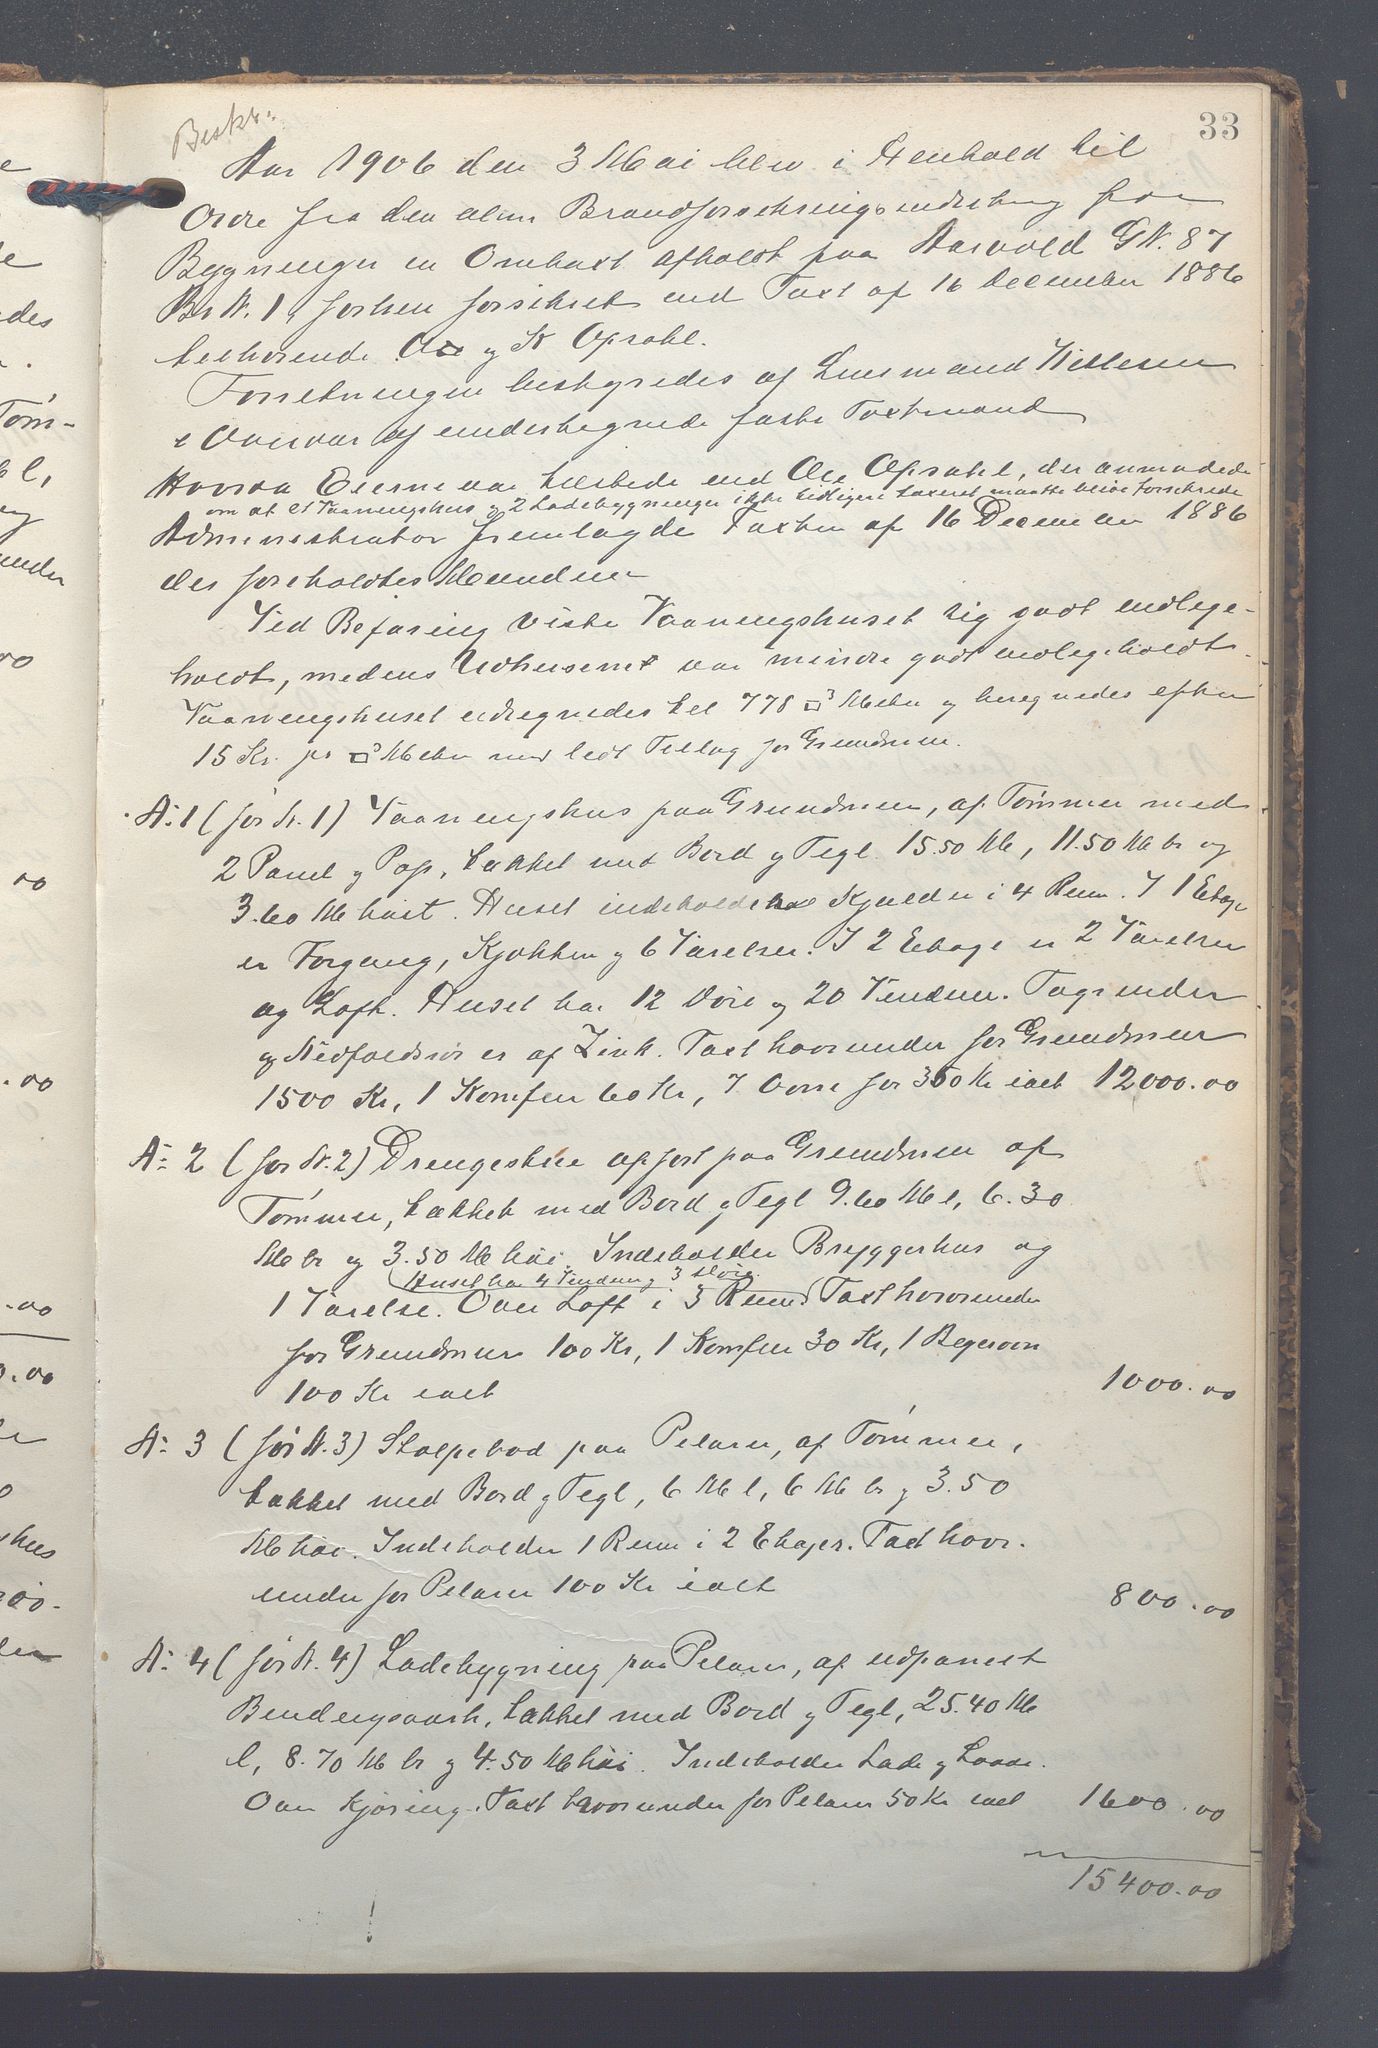 33
Beskr.
Aar 1906 den 3 Mai blev i Henhold til
Ordre fra den alm Brandforsikringsindretning for
Bygninger en Omtaxt afholdt paa Aarvold GN. 87
Br N. 1, forhen forsikret ved Taxt af 16 December 1886
tilhørende Ole og K Opsahl.
Forretningen bestyredes af Lensmand
i Overvær af undertegnede faste Taxtmænd
Hvorda Eierne var tilstede ved Ole Opsahl, der anmodede
om at et Vaaningshus og 2 Ladebygninger ikke tidligere taxeret maatte blive forsikrede
Administrator fremlagde Taxten af 16 December 1886
der foreholdtes Mændene
Ved Befaring viste Vaaningshuset sig godt vedlige-
holdt, medens Udhusene var mindre godt vedligeholdt.
Vaaningshuset udregnedes til 778 □³ Meter og beregnedes efter
15 Kr. pr □³ Meter med lidt Tillæg for Grundmur.
N: 1 (før N. 1) Vaaningshus paa Grundmur, af Tømmer med
2 Panel og Pap, tækket med Bord og Tegl. 15.50 M l, 11.50 M br og
3.60 M høit. Huset indeholder Kjælder i 4 Rum. I 1 Etage
er Forgang, Kjøkken og 6 Værelser. I 2 Etage er 2 Værelser
og Loft. Huset har 12 Døre og 20 Vinduer. Tagrender
og Nedfaldsrør er af Zink. Taxt hvorunder for Grundmur
1500 Kr, 1 Komfur 60 Kr, 7 Ovne for 350 Kr ialt 12000.00
N: 2 (før N. 2) Drengestue opført paa Grundmur af
Tømmer, tækket med Bord og Tegl 9.60 M l, 6.30
M br og 3.50 M høi. Indeholder Bryggerhus og
Huset har 4 Vinduer og 3 Døre.
1 Værelse. Over Loft i 3 Rum. Taxt hvorunder
for Grundmur 100 Kr, 1 Komfur 30 Kr, 1 Bagerovn
100 Kr ialt 1000.00
N: 3 (før N. 3) Stolpebod paa Pelarer, af Tømmer,
tækket med Bord og Tegl, 6 M l, 6 M br og 3.50
M høi. Indeholder 1 Rum i 2 Etager. Taxt hvor-
under for Pelarer 100 Kr ialt 800.00
N: 4 (før N. 4) Ladebygning paa Pelarer, af udpanelt
Bindingsværk, tækket med Bord og Tegl, 25.40 M
l, 8.70 M br og 4.50 M høi. Indeholder Lade og Laave.
Over Kjøring. Taxt hvorunder for Pelarer 50 Kr ialt 1600.00
15400.00